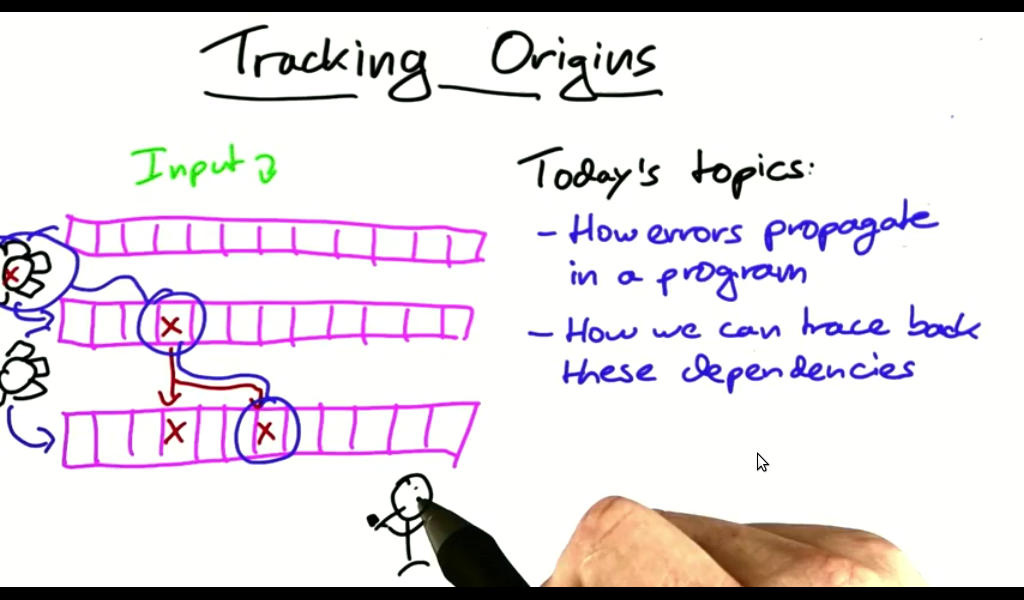 Tracking Origins
Input
Today's topics:
- How errors propagate
in a program
- How we can trace back
these dependencies
x
x
x x